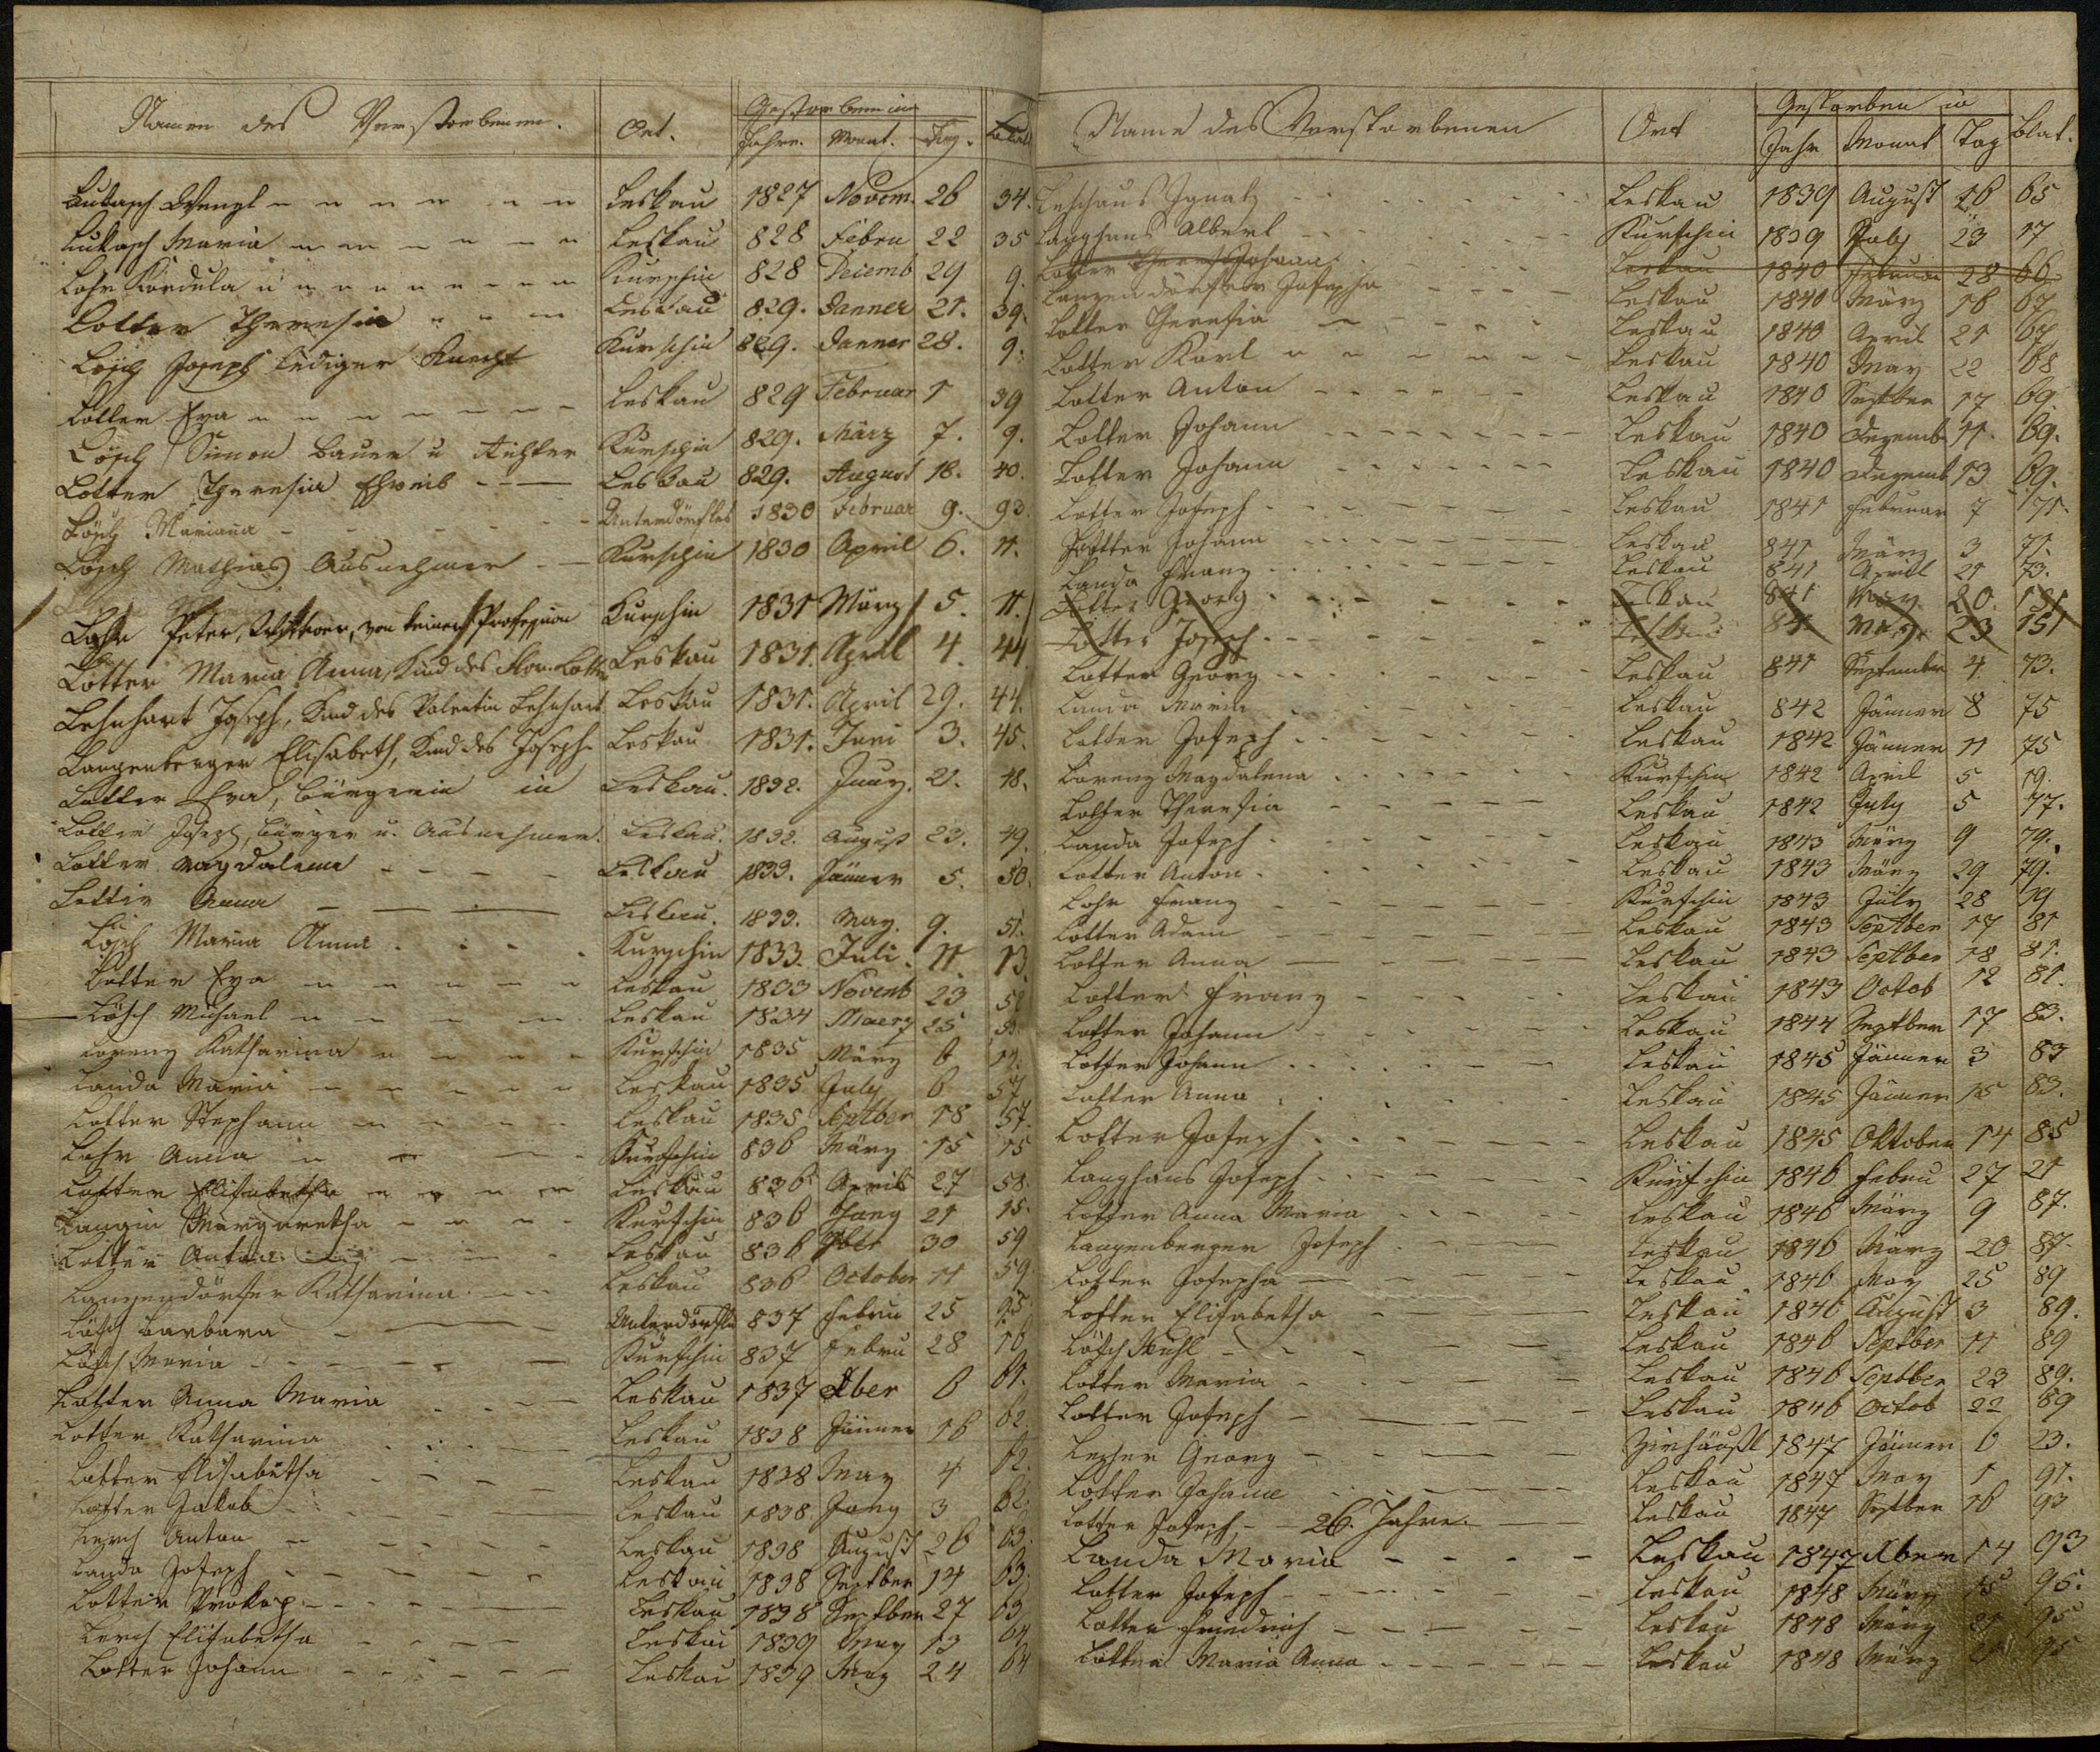 Namen des Verstorbenen. Ort. Gestorben im
Jahre. Monat. Tag. Blatt
Lukasch Wenzl Leskau 1827 Novem. 26 34.
Lukasch Maria Leskau 828 Febru 22 35
Lohr Kordula Kurschin 828 Deiemb 29 9.
Lotter Theresia Leskau 829. Janner 21. 39.
Lösch Joseph lediger Knecht Kurschin 829. Janner 28. 9.
Lotter Eva Leskau 829 Februar 1 39
Lösch Simon Bauer u Richter Kurschin 829. März 7. 9.
Lotter Theresia Eheweib Leskau 829. August 18. 40.
Lösch Mariana Unterdörfles 1830 Februar 9. 93.
Lösch Mathias Ausnehmer Kurschin 1830 April 6. 11.
Lohr Peter, Wittwer, von keiner Profession Kurschin 1831 März 5. 11.
Lotter Maria Anna, Kind des Lotter Leskau 1831. April 4. 44
Lehnhart Joseph, Kind des Valentin Lehnhart Leskau 1831. April 29. 44.
Langenberger Elisabeth, Kind des Joseph Leskau 1831. Juni 3. 45.
Lotter Eva, Bürgerin in Leskau. 1832. Juny. 21. 48.
Lotter Joseph, Bürger u. Ausnehmer. Leskau. 1832. August 23. 49.
Lotter Magdalena Leskau 1833. Jänner 5. 50.
Lotter Anna Leskau. 1833. May. 9. 51.
Lösch Maria Anna Kurschin 1833. Juli. 11 13
Lotter Eva Leskau 1833 Novemb 23 52
Lösch Michael Leskau 1834 Maerz 25
Lorenz Katharina Kurschin 1835 März 6 14.
Landa Maria Leskau 1835 July 6 57
Lotter Stephann Leskau 1835 Septber 18 57.
Lohr Anna Kurschin 836 März 15 15
Lotter Elisabetha Leskau 836 April 27 58.
Langin Margaretha Kurschin 836 Juny 21 15.
Lotter Anton Leskau 836 7ber 30 59
Langendörfer Katharina Leskau 836 October 11 59.
Lösch Barbara Unterdörfles 837 Febru 25 95.
Lösch Maria Kurschin 837 Febru 28 16
Lotter Anna Maria Leskau 1837 Xber 6 61.
Lotter Katharina Leskau 1838 Jänner 16 62.
Lotter Elisabetha Leskau 1838 May 4 62.
Lotter Jakob Leskau 1838 Juny 3 62.
Lerch Anton Leskau 1838 August 26 63.
Landa Joseph Leskau 1838 Septber 14 63.
Lotter Prokop Leskau 1838 Septber 27 63
Lerch Elisabetha Leskau 1839 May 13 64
Lotter Johann Leskau 1839 May 24 64
Name des Verstorbenen Ort Gestorben in
Jahr Monat Tag Blat.
Leschaus Ignatz Leskau 1839 August 16 65
Langhans Albert Kurschin 1839 July 23 17
Lotter Johann Leskau 1840 Februar 28 66
Langendörfer Josepha Leskau 1840 März 16 67
Lotter Theresia Leskau 1840 April 21 67
Lotter Karl Leskau 1840 May 22 68
Lotter Anton Leskau 1840 Septber 17 69
Lotter Johann Leskau 1840 Dezemb 11. 69.
Lotter Johann Leskau 1840 Dezemb 13 69.
Lotter Joseph Leskau 1841 Februar 7 71.
Lotter Johann Leskau 841 März 3 71.
Landa Franz Leskau 841 April 21 73.
Lotter Georg Leskau 841 May 20. 151
Lotter Joseph Leskau 841 May 23 151
Lotter Georg Leskau 841 September 4 73.
Landa Maria Leskau 842 Jänner 8 75
Lotter Joseph Leskau 1842 Jänner 11 75
Lorenz Magdalena Kurschin 1842 April 5 19.
Lotter Theresia Leskau 1842 July 5 77.
Landa Joseph Leskau 1843 März 9 79.
Lotter Anton Leskau 1843 März 29 79.
Lohr Franz Kurschin 1843 July 28 19
Lotter Adam Leskau 1843 Septber 17 81
Lotter Anna Leskau 1843 Septber 18 81.
Lotter Franz Leskau 1843 Octob 12 81.
Lotter Johann Leskau 1844 Septber 17 83.
Lotter Johann Leskau 1845 Jänner 3 83
Lotter Anna Leskau 1845 Jänner 15 83.
Lotter Joseph Leskau 1845 Oktober 14 85
Langhans Joseph Kurschin 1846 Febru 27 21
Lotter Anna Maria Leskau 1846 März 9 87.
Langenberger Joseph Leskau 1846 März 20 87.
Lotter Josepha Leskau 1846 May 25 89
Lotter Elisabetha Leskau 1846 August 3 89.
Lösch Leskau 1846 Septber 11 89
Lotter Maria Leskau 1846 Septber 23 89.
Lotter Joseph Leskau 1846 Octob 22 89
Georg 1847 Jänner 6 23.
Lotter Johann Leskau 1847 May 1 91.
Lotter Joseph, 26. Jahre. Leskau 1847 Septber 16 93
Landa Maria Leskau 1847 Xber 14 93
Lotter Joseph Leskau 1848 März 15 95.
Lotter Friedrich Leskau 1848 März 21 95
Lotter Maria Anna Leskau 1848 März 21 95